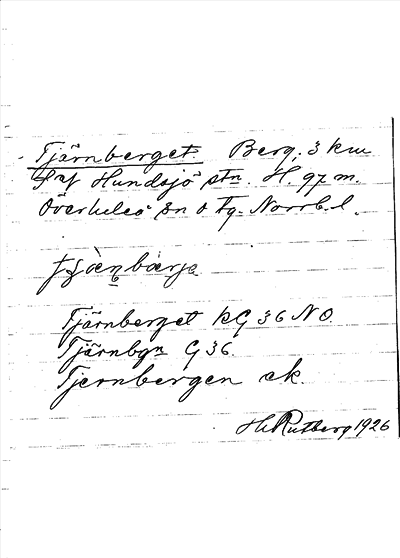 Tjärnberget. Berg, 3 km
S af Hundsjö stn. H. 97 m.
Överluleå sn o Fg. Norrb. l.
Tjärnberget kG 36 NO.
Tjärnbgn G 36.
Tjernbergen ek.
H. Rutberg 1926